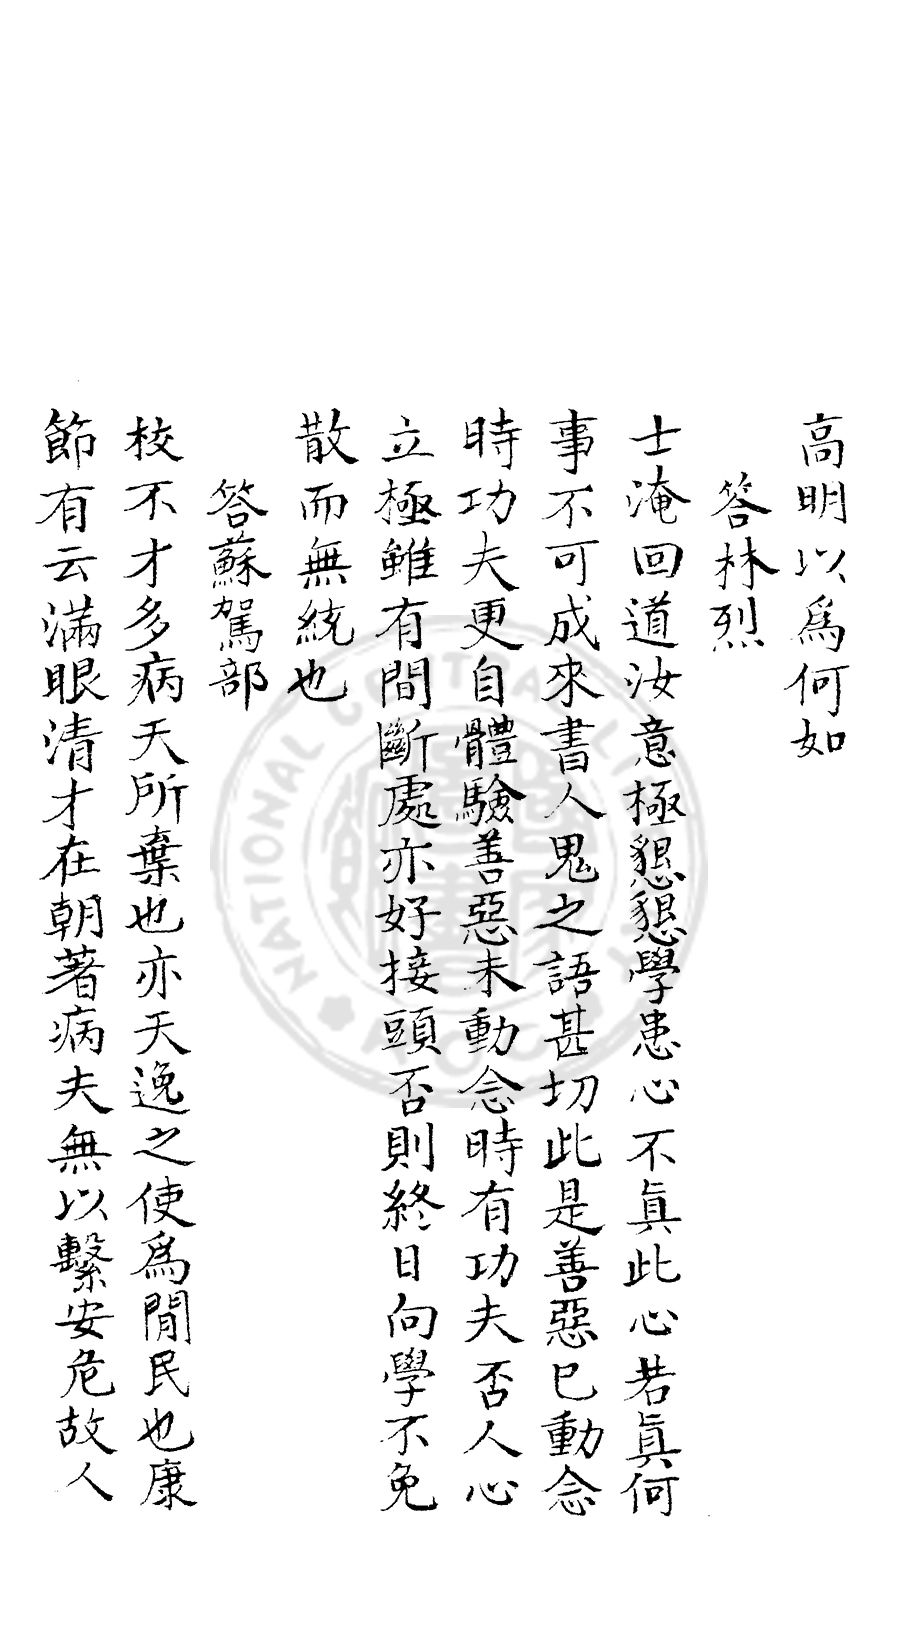 高明以爲何如
答林烈
士淹回道汝意極懇懇學患心不眞此心若眞何
事不可成來書人鬼之語甚切此是善惡已動念
時功夫更自體驗善惡未動念時有功夫否人心
立極雖有間斷處亦好接頭否則終日向學不免
散而無統也
答蘇駕部
校不才多病天所棄也亦天逸之使爲閒民也康
節有云滿眼清才在朝著病夫無以繫安危故人
NATIONAL CENTRAL LIBRARY